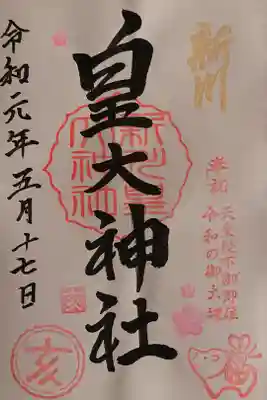 新川
皇大神社
奉祝 天皇陛下御即位
令和の御大礼
令和元年五月十七日
亥